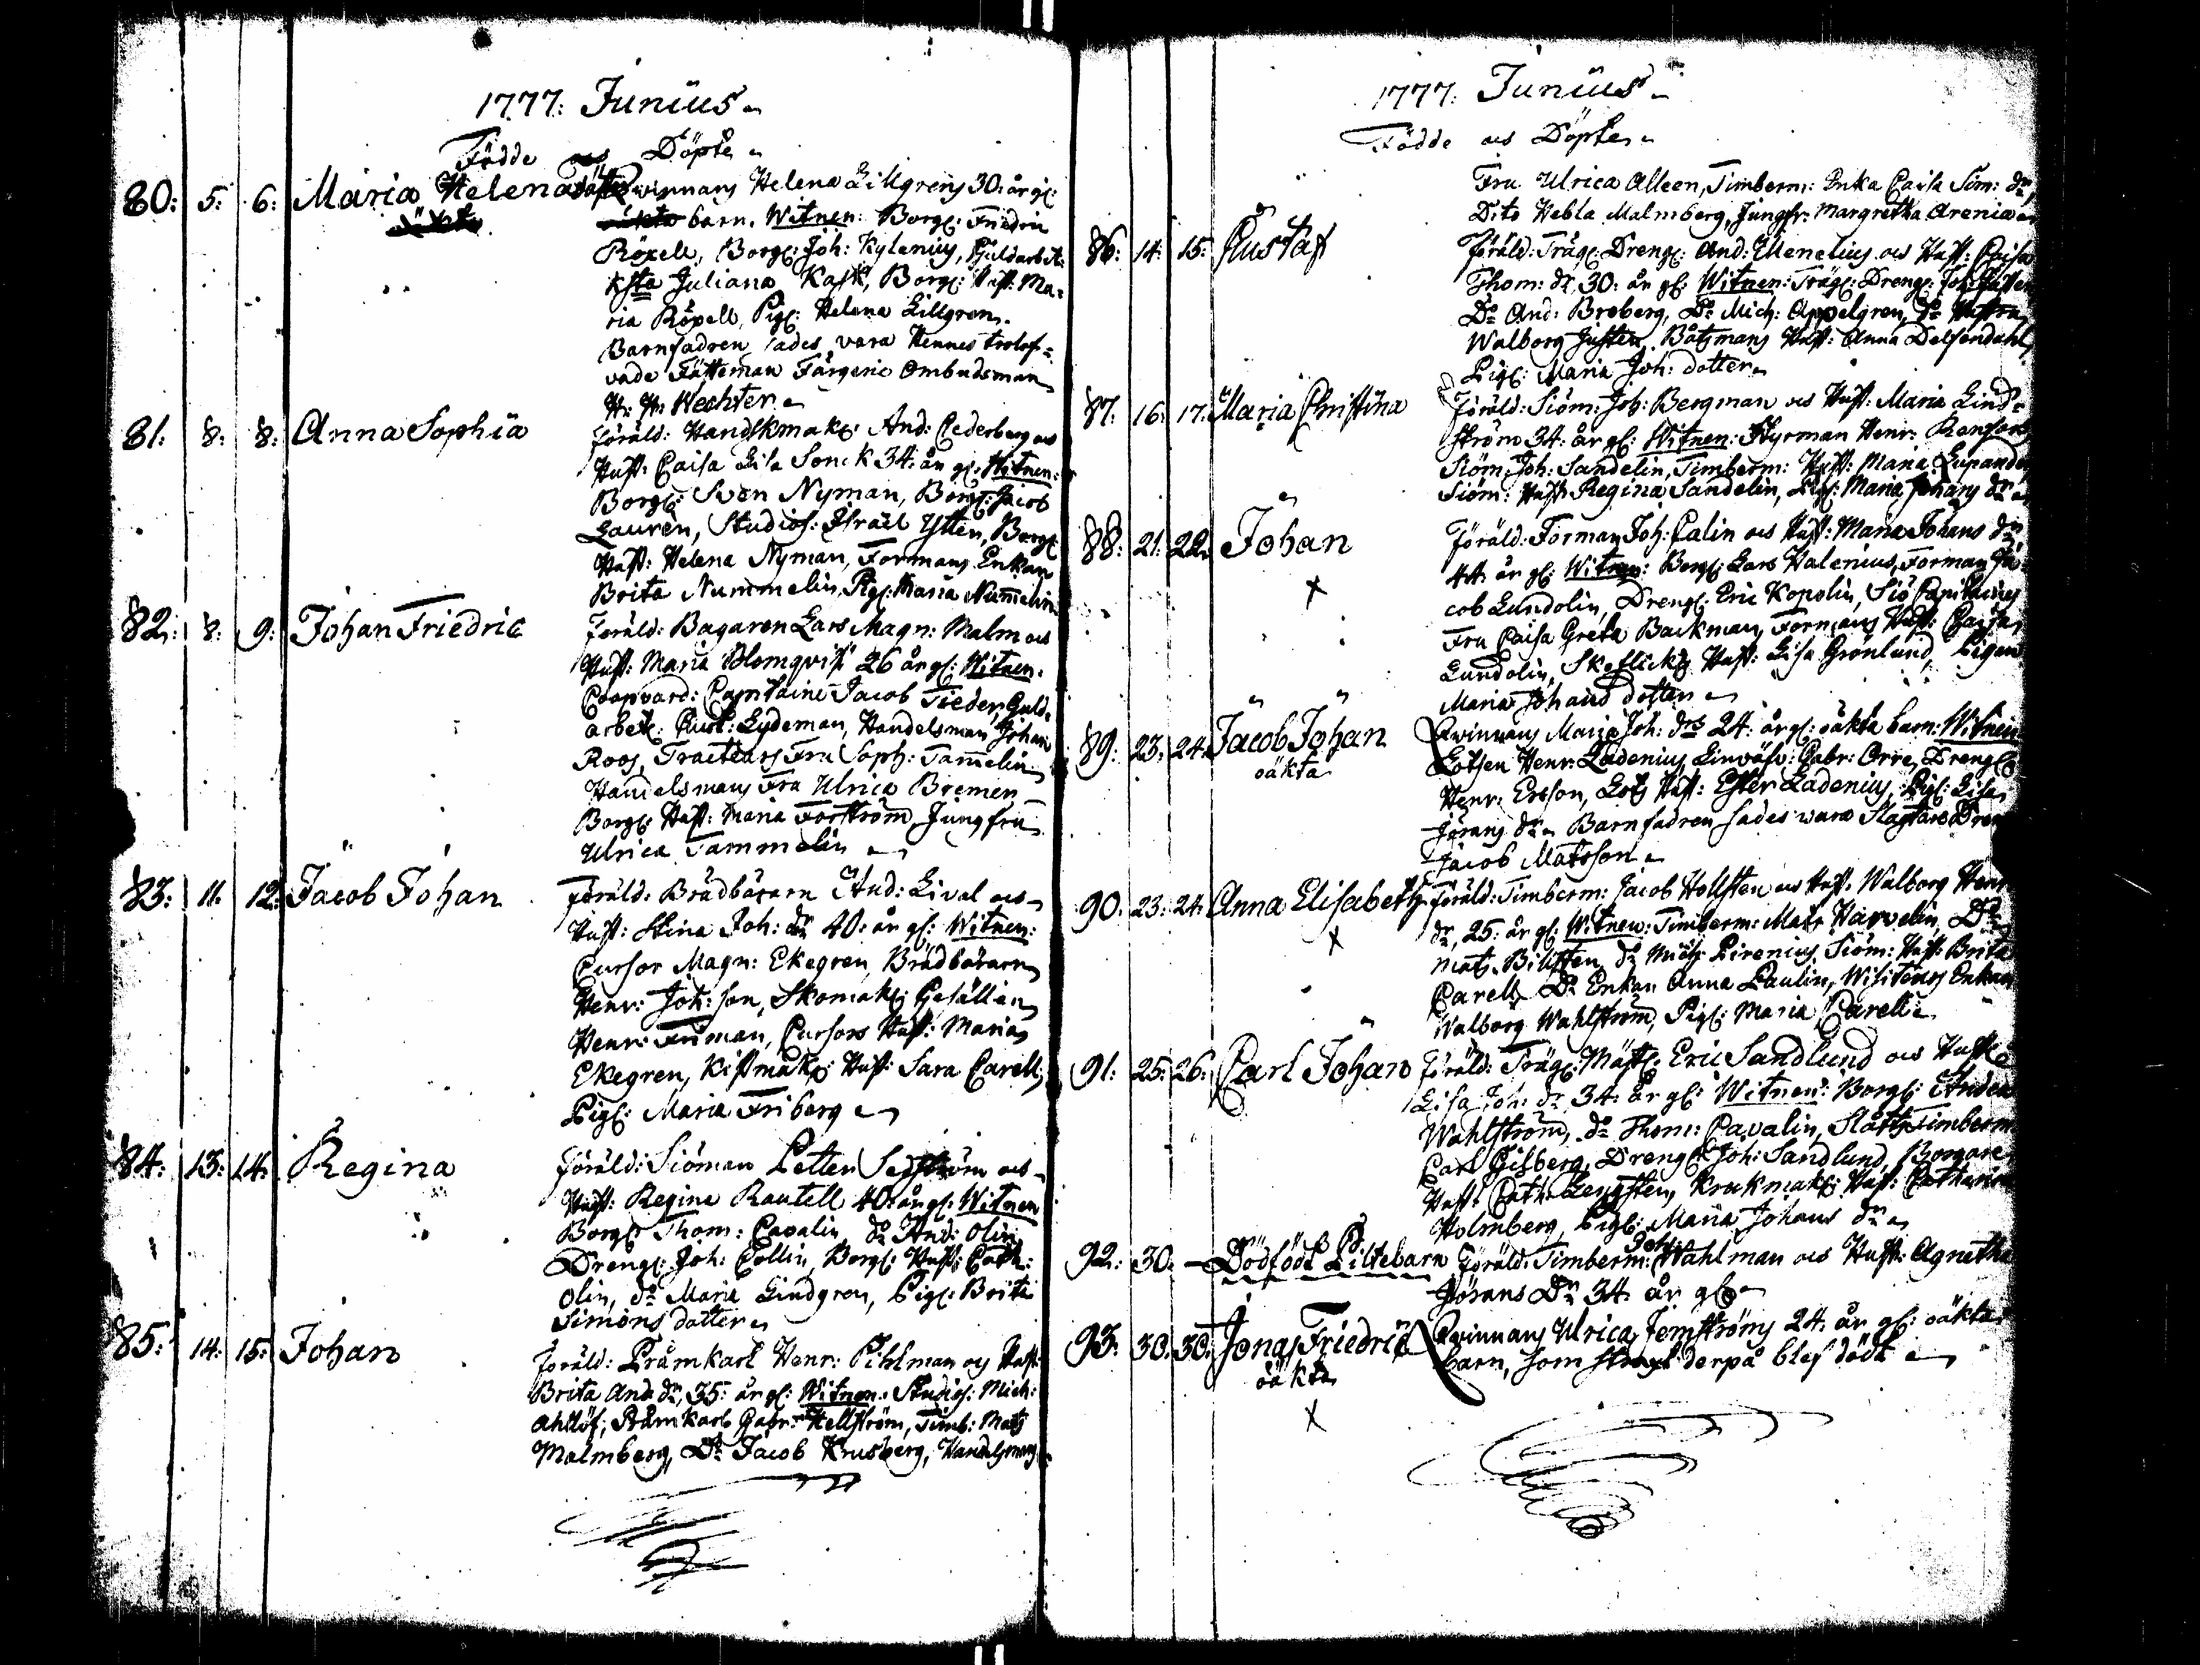 1777. Junius
Födde och Döpte
80: 5: 6: Maria Helena
qvinnans Helena Lillgrens 30: år gl:
barn. Witnen: Borg: Friedric
Röxell, Borg: Joh: Kylenius, Guldarbet:
Juliana Kask, Borg: Hust: Ma=
ria Röxell, Pig: Helena Lillgren.
Barnfadren sades vara Hennes trolof=
vade Fästeman Färgeri Ombudsman
Hr: Wechter
81: 8: 8: Anna Sophia
Föräld: Handskmak: And: Cederberg och
Hust: Caisa Lisa Sonck 34: år gl: Witnen:
Borg: Sven Nyman, Borg: Jacob
Lauren, Studios: Israel Ysten, Borg:
Hust: Helena Nyman, Formans Enkan
Brita Nummelin, Pig: Maria Num̅elin
82: 8: 9: Johan Friedric
Föräld: Bagaren Lars Magn: Malm och
Hust: Maria Blomqvist 26 år gl: Witnen:
Coopvard: Capitaine Jacob Tieder, Guld=
arbet: Gust: Lydeman, Handelsman Johan
Roos, Tracteurs Fru Soph: Tam̅elin
Handelsmans Fru Ulrica Bremer
Borg: Hust: Maria Forström, Jungfru
Ulrica Tammelin
83: 11: 12: Jacob Johan
Föräld: Brädbäraren And: Lival och
Hust: Stina Joh: dr 40: år gl: Witnen:
Cursor Magn: Ekegren, Brädbäraren
Henr: Joh: son, Skomak: Gesällen
Henr: Friman, Cursors Hust: Maria
Ekegren, Kistmak: Hust: Sara Carell,
Pig: Maria Friberg
84: 13: 14: Regina
Föräld: Siöman Petter Sedström och
Hust: Regina Rautell 40: år gl: Witnen
Borg: Thom: Cavalin, do And: Olin
Dreng: Joh: Collin, Borg: Hust: Cath:
Olin, do Maria Lindgren, Pig: Brita
Simons dotter
85: 14: 15: Johan
Föräld: Pråmkarl Henr: Pihlman och Hust:
Brita And: dr, 35: år gl: Witnen: Studios: Mich:
Ahllöf, Pråmkarl Gabr: Hellström, Timb: Mats
Malmberg, Do Jacob Krusberg, Handelsmans
1777: Junius
Födde och Döpte
Fru Ulrica Alleen, Timberm: Enka Caisa Sim: dr,
Dito Hebla Malmberg, Jungfr: Margretha Arenia
86: 14: 15: Gustaf
Föräld: Träg: Dreng: And: Menelius och Hust: Caisa
Thom: dr, 30: år gl: Witnen: Träg: Dreng: Joh:
Do And: Broberg, Do Mich: Appelgren, do Hustru
Walborg Justen, Båtsmans Hust: Anna Delfendahl,
Pig: Maria Joh: dotter
87: 16: 17: Maria Christina
Föräld: Siöm: Joh: Bergman och Hust: Maria Lind=
ström 34: år gl: Witnen: Styrman Henr:
Siöm: Joh: Sandelin, Timberm: Hust: Maria Lupander
Siöm: Hust: Regina Sandelin, Pig: Maria Johans dr
88: 21: 22: Johan
Föräld: Forman Joh: Palin och Hust: Maria Johans dr
44: år gl: Witnen: Borg: Lars Halenius, Forman Ja=
cob Lundolin, Dreng: Eric Kopolin, Siö Capitaines
Fru Caisa Greta Backman, Formans Hust: Caisa
Lundolin, Skeflick: Hust: Lisa Grönlund, Pigan
Maria Johans dotter
X
89: 23: 24: Jacob Johan
oäkta
Qvinnans Maria Joh: drs 24: år gl: oäkta barn: Witnen
Lotsen Henr: Ladenius, Linväfv: Gabr: Orre, Dreng:
Henr: Ersson, Lots Hust: Ester Ladenius, Pig: Lisa
Jörans dr Barnfadren sades vara Slagtare Dren
Jacob Matsson
90: 23: 24: Anna Elisabeth
Föräld: Timberm: Jacob Hollsten och Hust: Walborg Henr:
dr, 25: år gl: Witnen: Timberm: Mats Harvelin, Do
Mats Billsten, do Mich: Pirenius, Siöm: Hust: Brita
Carell, Do Enkan Anna Paulin, Wisiteurs Enkan
Walborg Wahlström, Pig: Maria Carell
X
91: 25: 26: Carl Johan
Föräld: Träg: Mäst: Eric Sandlund och Hust:
Lisa Joh: dr 34: år gl: Witnen: Borg: Anders
Wahlström, do Thom: Cavalin, Slotts Timberm
Carl Gisberg, Dreng: Joh: Sandlund, Borgare
Hust: Cath: Lengsten, Krukmak: Hust: Catharina
Holmberg, Pig: Maria Johans dr
92: 30: — Dödfödt Piltebarn
Föräld: Timberm: Joh: Wahlman och Hust: Agnetha
Jörans Dr 34: år gl:
93: 30: 30: Jonas Friedric
oäkta
Qvinnans Ulrica Jernströms 24: år gl: oäkta
barn, som straxt derpå blef dödt
X